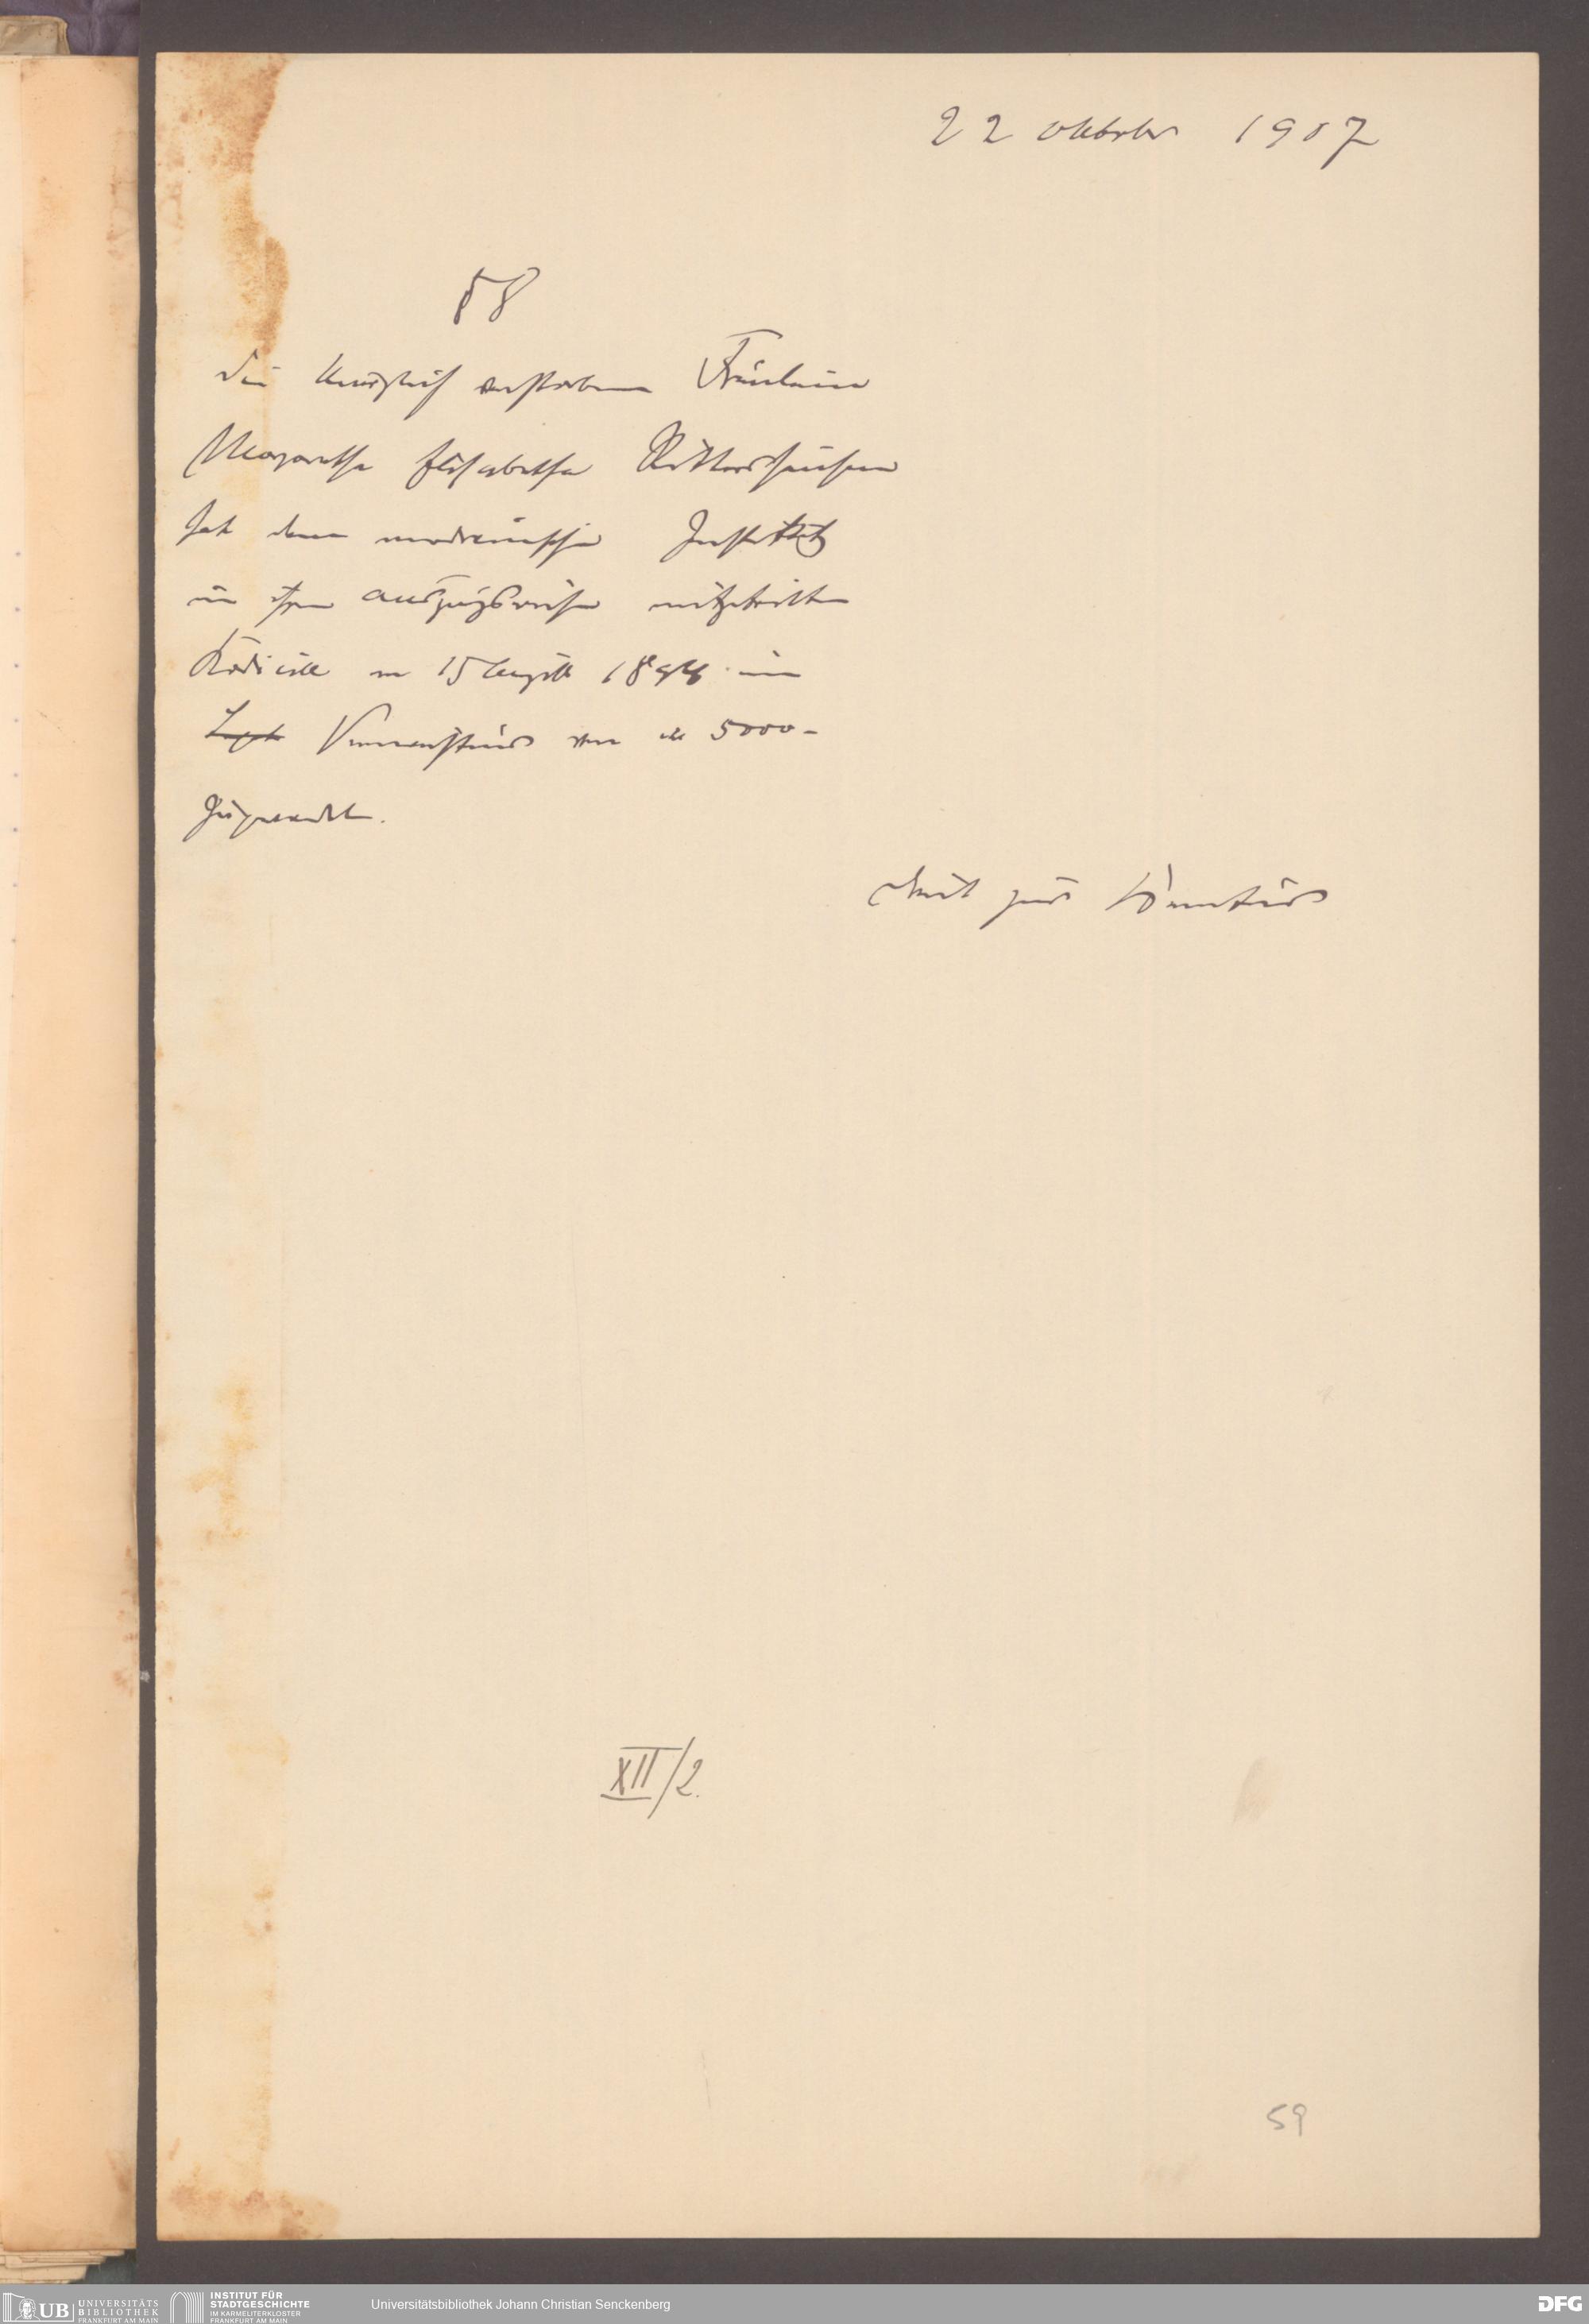 22 Oktober 1907
58
Die kürzlich verstorbene Fräulein
Margaretha Elisabetha Rittershausen
hat dem medicinischen Institut
in ihrem auszugsweise mitgetheilten
Kodicill vom 15 August 18
Legat Vermächtnis von M 5000-
zugewandt.
dient zur Kenntnis
XII/2.
59
UB UNIVERSITÄTS
BIBLIOTHEK
FRANKFURT AM MAIN
INSTITUT FÜR
STADTGESCHICHTE
IM KARMELITERKLOSTER
FRANKFURT AM MAIN
Universitätsbibliothek Johann Christian Senckenberg
DFG